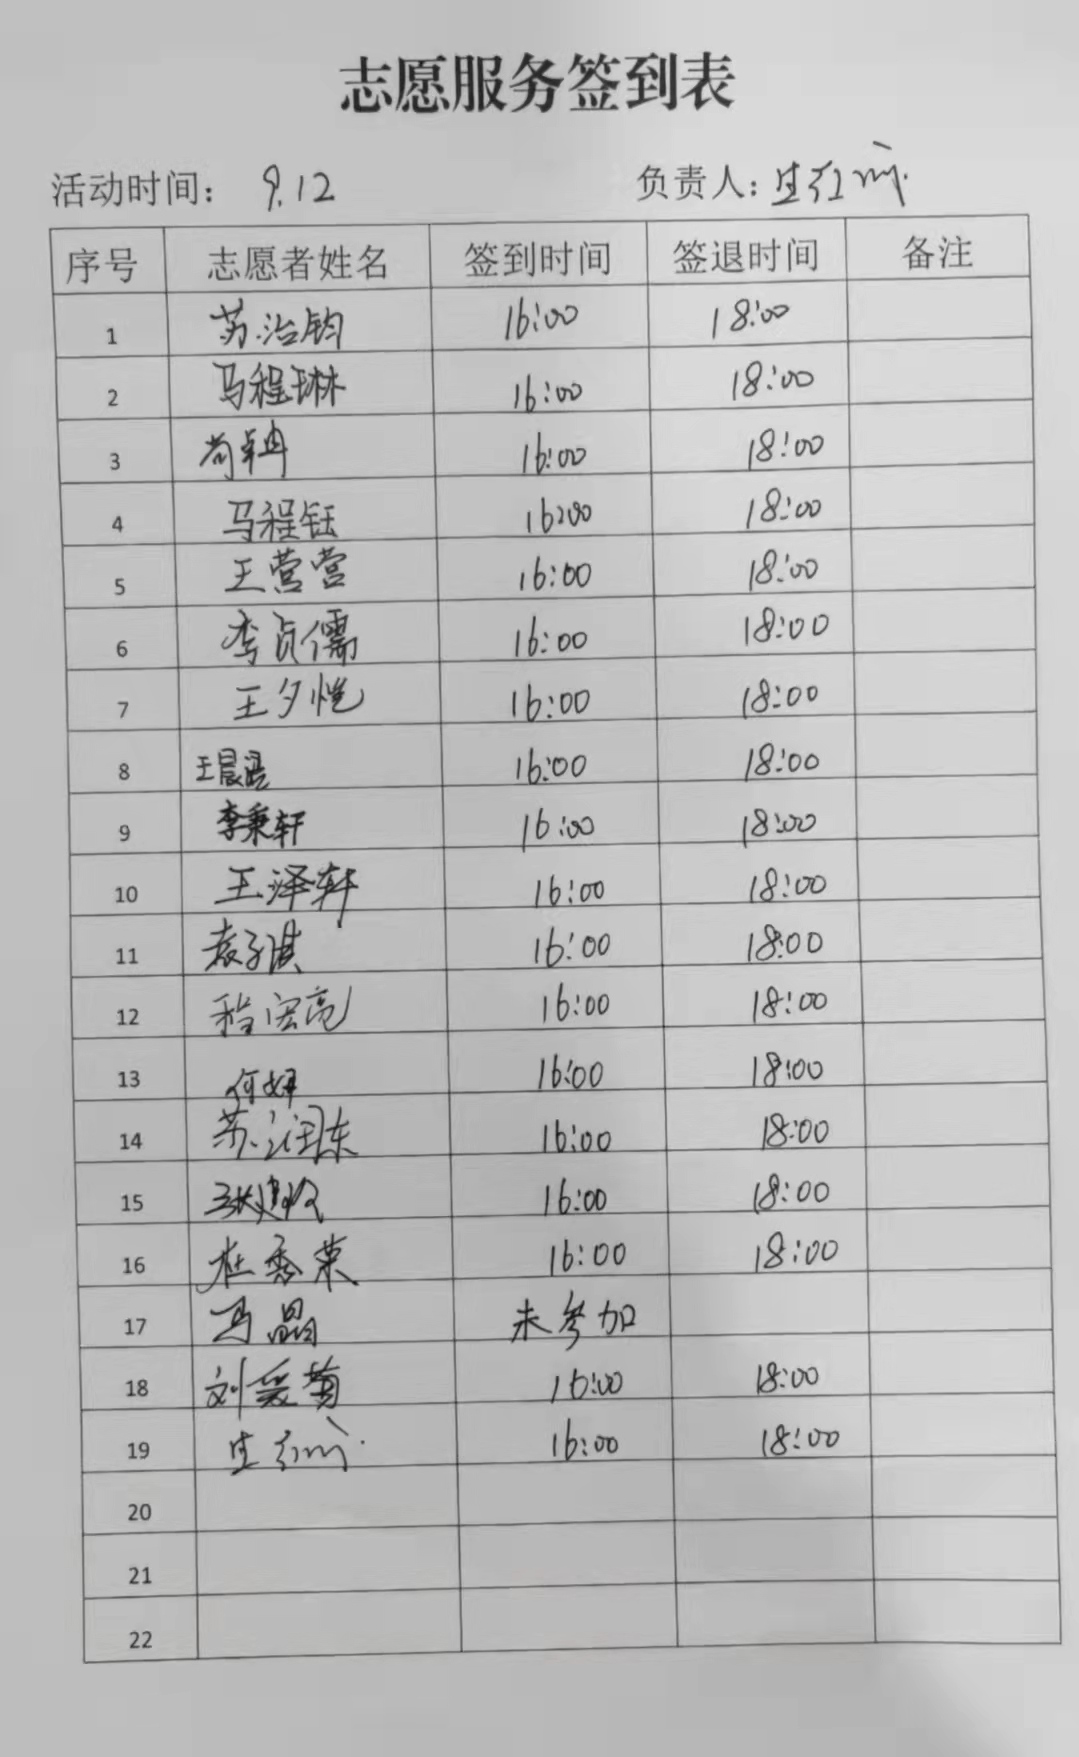 志愿服务签到表
活动时间： 9.12 负责人：生红
序号 志愿者姓名 签到时间 签退时间 备注
1 苏治钧 16:00 18:00
2 马程琳 16:00 18:00
3 苟卓冉 16:00 18:00
4 马程钰 16:00 18:00
5 王营营 16:00 18:00
6 李贞儒 16:00 18:00
7 王夕恺 16:00 18:00
8 王晨 16:00 18:00
9 李秉轩 16:00 18:00
10 王泽轩 16:00 18:00
11 袁子淇 16:00 18:00
12 程宏亮 16:00 18:00
13 何妍 16:00 18:00
14 苏润东 16:00 18:00
15 张建 16:00 18:00
16 杜秀荣 16:00 18:00
17 冯晶 未参加
18 刘爱菊 16:00 18:00
19 生红 16:00 18:00
20
21
22